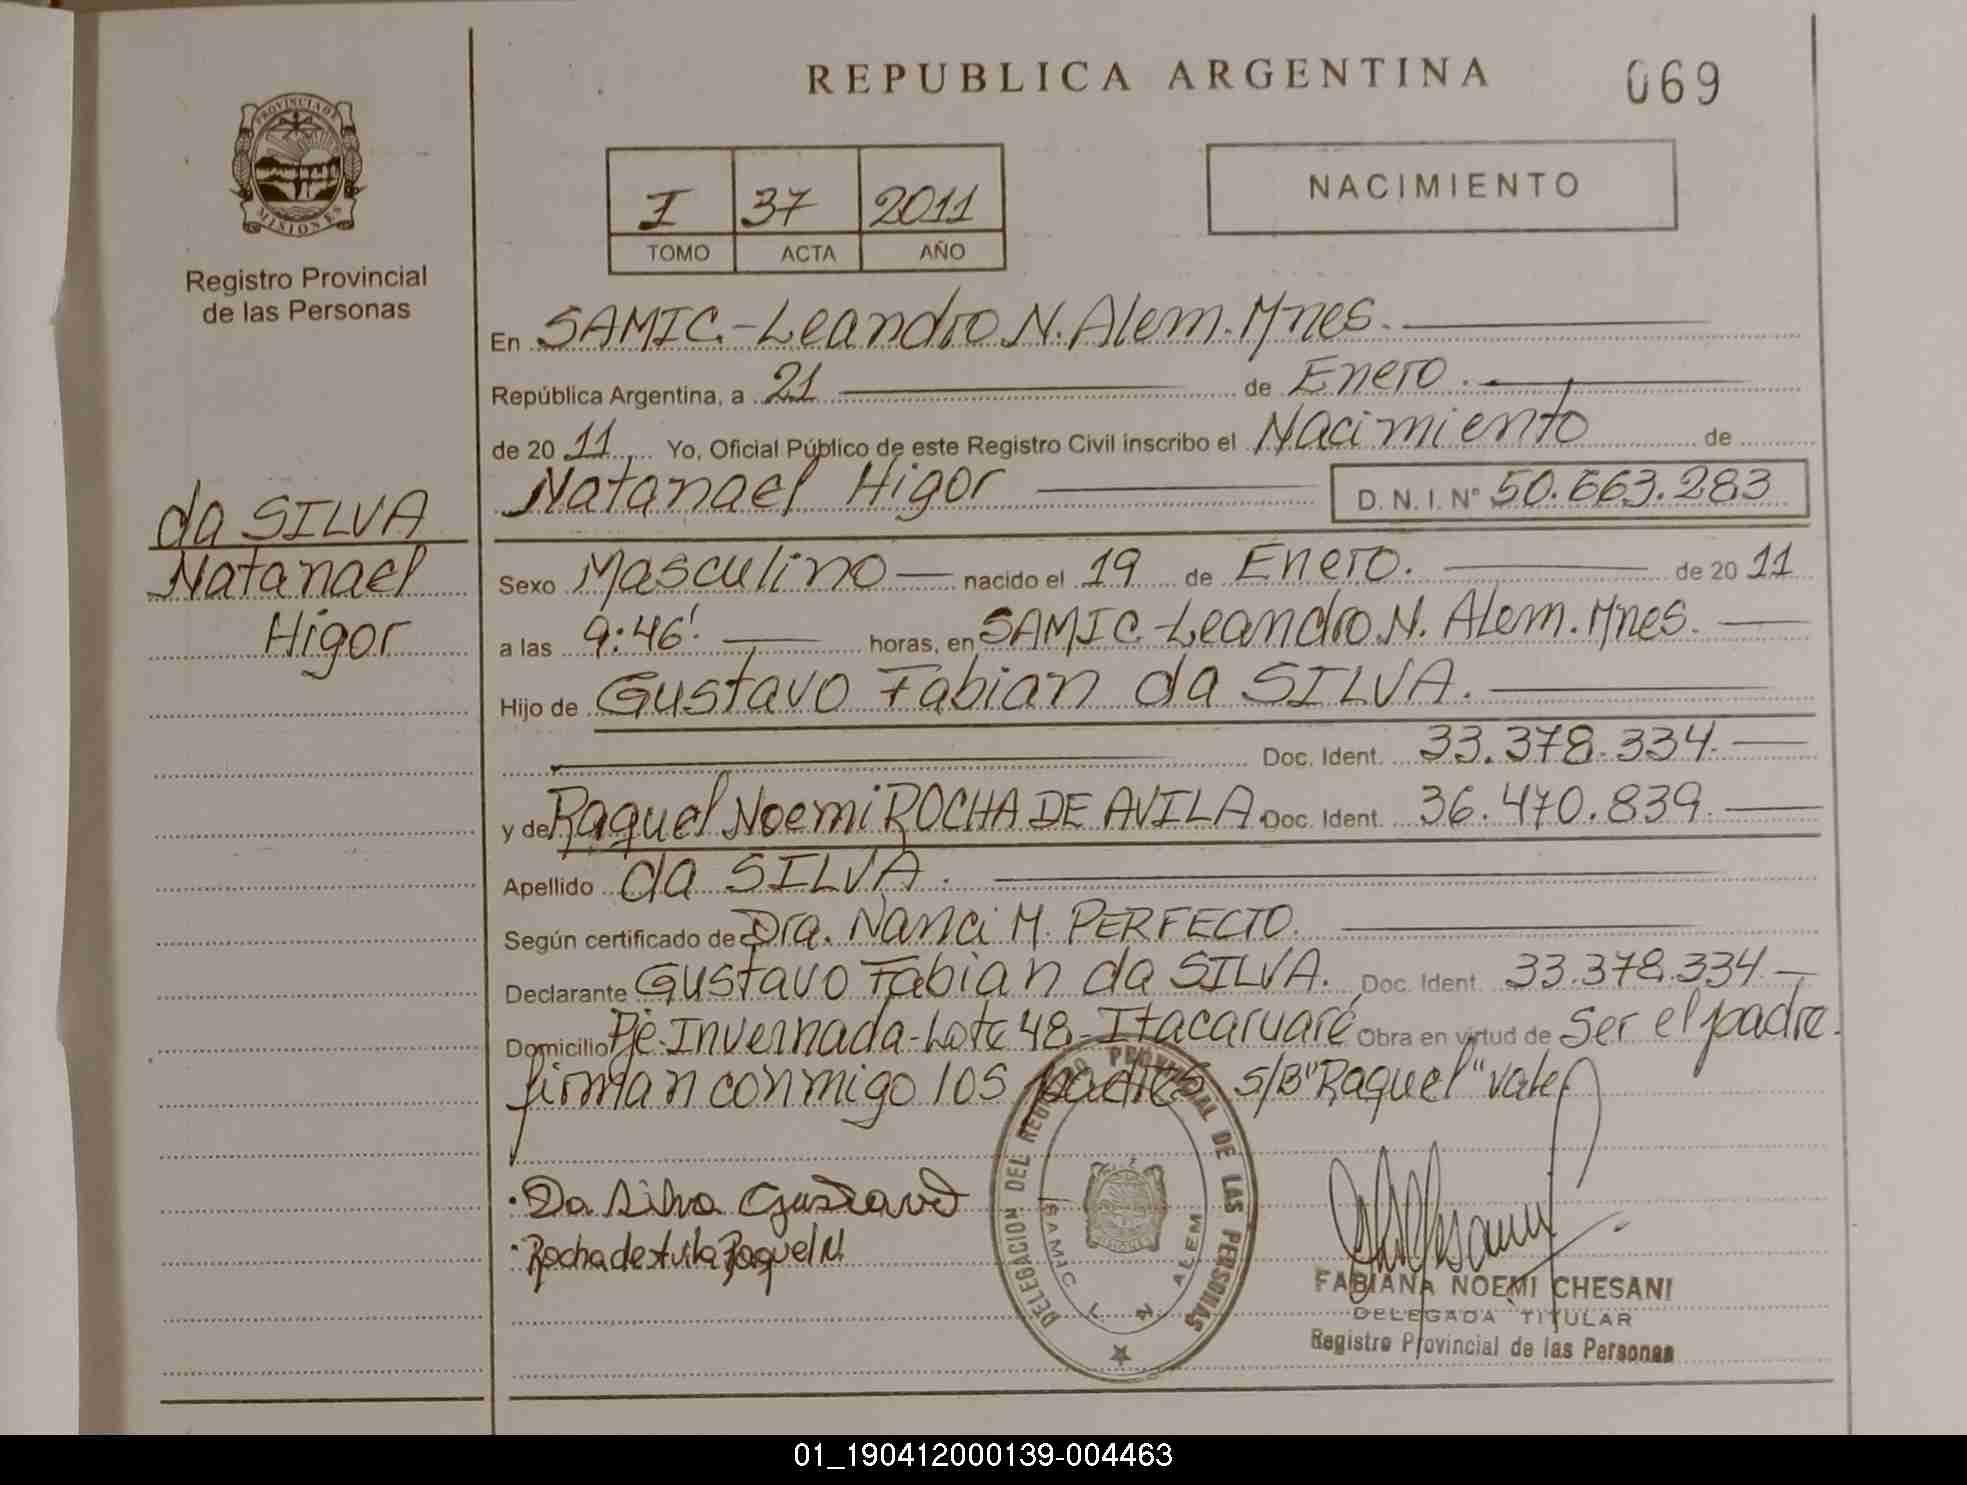 REPUBLICA ARGENTINA
069
PROVINCIA DE
MISIONES
Registro Provincial
de las Personas
I 37 2011
TOMO ACTA AÑO
NACIMIENTO
En SAMIC.-Leandro N. Alem. Mnes.
República Argentina, a 21 de Enero.
de 20 11 Yo, Oficial Público de este Registro Civil inscribo el Nacimiento de
Natanael Higor D.N.I. N° 50.663.283
da SILVA
Natanael
Higor
Sexo Masculino nacido el 19 de Enero. de 20 11
a las 9:46'. horas, en SAMIC-Leandro N. Alem. Mnes.
Hijo de Gustavo Fabian da SILVA.
Doc. Ident. 33.378.334.
y de Raquel Noemi ROCHA DE AVILA. Doc. Ident. 36.470.839.
Apellido da SILVA.
Según certificado de Dra. Nanci M. PERFECTO.
Declarante Gustavo Fabian da SILVA. Doc. Ident. 33.378.334
Domicilio Pje. Invernada-Lote 48-Itacaruaré, Obra en virtud de ser el padre.
firman conmigo los padres S/B "Raquel" vale
Da Silva Gustavo
Rocha de Avila Raquel N.
DELEGACION DEL REGISTRO PROVINCIAL DE LAS PERSONAS
SAMIC L. N. ALEM
MISIONES
FABIANA NOEMI CHESANI
DELEGADA TITULAR
Registro Provincial de las Personas
01_190412000139-004463